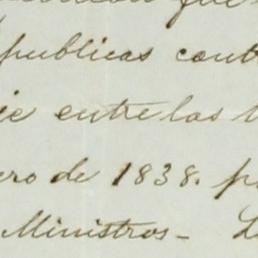 publicas cont
ie entre las
ero de 1838. p
Ministros_ L